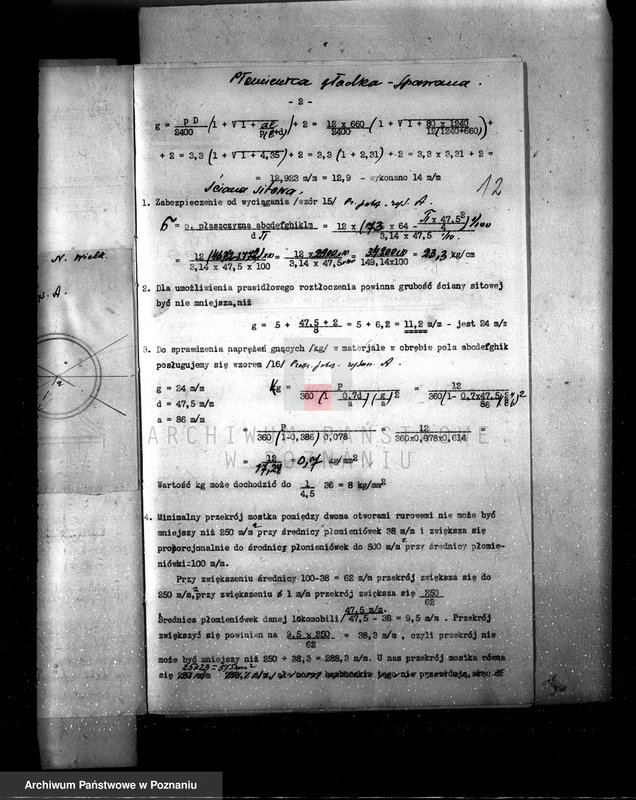 Płomienica gładka - spawana.
- 2 -
g = p D / 2400 (1 + √ 1 + al / p(l+d) ) + 2 = 12 x 660 / 2400 ( 1 + √ 1 + 80 x 1240 / 12(1240+660) ) +
+ 2 = 3,3 (1 + √1 + 4,35) + 2 = 3,3 (1 + 2,31) + 2 = 3,3 x 3,31 + 2 =
= 12,923 m/m = 12,9 - wykonano 14 m/m
Ściana sitowa.
12
1. Zabezpieczenie od wyciągania /wzór 15/ A.
= p. płaszczyzna abcdefghiklm / d π = 12 x ( x 64 - π x 47.5² / 4 ) / 3,14 x 47,5
= 12 / 3,14 x 47,5 x 100 = 12 x / 3,14 x 47,5 = / 149,14x100 = 23,3 kg/cm
N. Wielk.
A.
2. Dla umożliwienia prawidłowego roztłoczenia powinna grubość ściany sitowej
być nie mniejsza, niż
g = 5 + 47,5 + 2 / 8 = 5 + 6,2 = 11,2 m/m - jest 24 m/m
3. Do sprawdzenia naprężeń gnących /kg/ w materjale w obrębie pola abcdefghik
posługujemy się wzorem /16/ A.
g = 24 m/m
kg = P / 360 (1 - 0,7d / a) (g / a)² = 12 / 360(1- 0,7x47,5 / 86)
d = 47,5 m/m
a = 86 m/m
= P / 360 (1-0,386) 0,078 = 12 / 360x0,078x0,614 =
ARCHIWUM PAŃSTWOWE
W POZNANIU
= 12 / 17,24 = 0,7 kg/mm²
Wartość kg może dochodzić do 1 / 4,5 36 = 8 kg/mm²
4. Minimalny przekrój mostka pomiędzy dwoma otworami rurowemi nie może być
mniejszy niż 250 m/m² przy średnicy płomieniówek 38 m/m i zwiększa się
proporcjonalnie do średnicy płomieniówek do 500 m/m² przy średnicy płomie-
niówki=100 m/m.
Przy zwiększeniu średnicy 100-38 = 62 m/m przekrój zwiększa się do
250 m/m,² przy zwiększeniu o 1 m/m przekrój zwiększa się 250 / 62
47,5 m/m.
Średnica płomieniówek danej lokomobili/ 47,5 - 38 = 9,5 m/m . Przekrój
zwiększyć się powinien na 9,5 x 250 / 62 = 38,3 m/m , czyli przekrój nie
może być mniejszy niż 250 + 38,3 = 288,3 m/m. U nas przekrój mostka równa
się
Archiwum Państwowe w Poznaniu